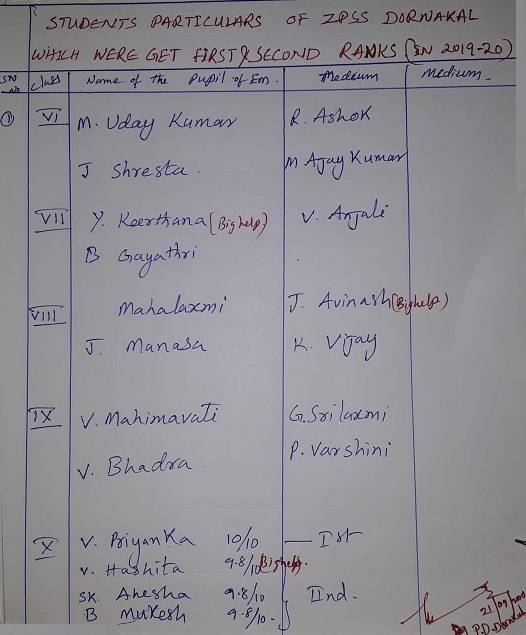 STUDENTS PARTICULARS OF ZPSS DORNAKAL
WHICH WERE GET FIRST & SECOND RANKS (IN 2019-20)
SNo Class Name of the Pupil of Em. Medium Medium
① VI M. Uday Kumar R. Ashok
J Shresta. M Ajay Kumar
VII Y. Keerthana (Bighelp) V. Anjali
B Gayathri
VIII Mahalaxmi J. Avinash (Bighelp)
J. Manasa K. Vijay
IX V. Mahimavati G. Srilaxmi
V. Bhadra. P. Varshini
X V. Priyanka 10/10 — Ist
V. Hashita 9.8/10 Bighelp.
SK. Anesha 9.8/10 IInd.
B Mukesh 9.8/10.
P.D. Dornakal